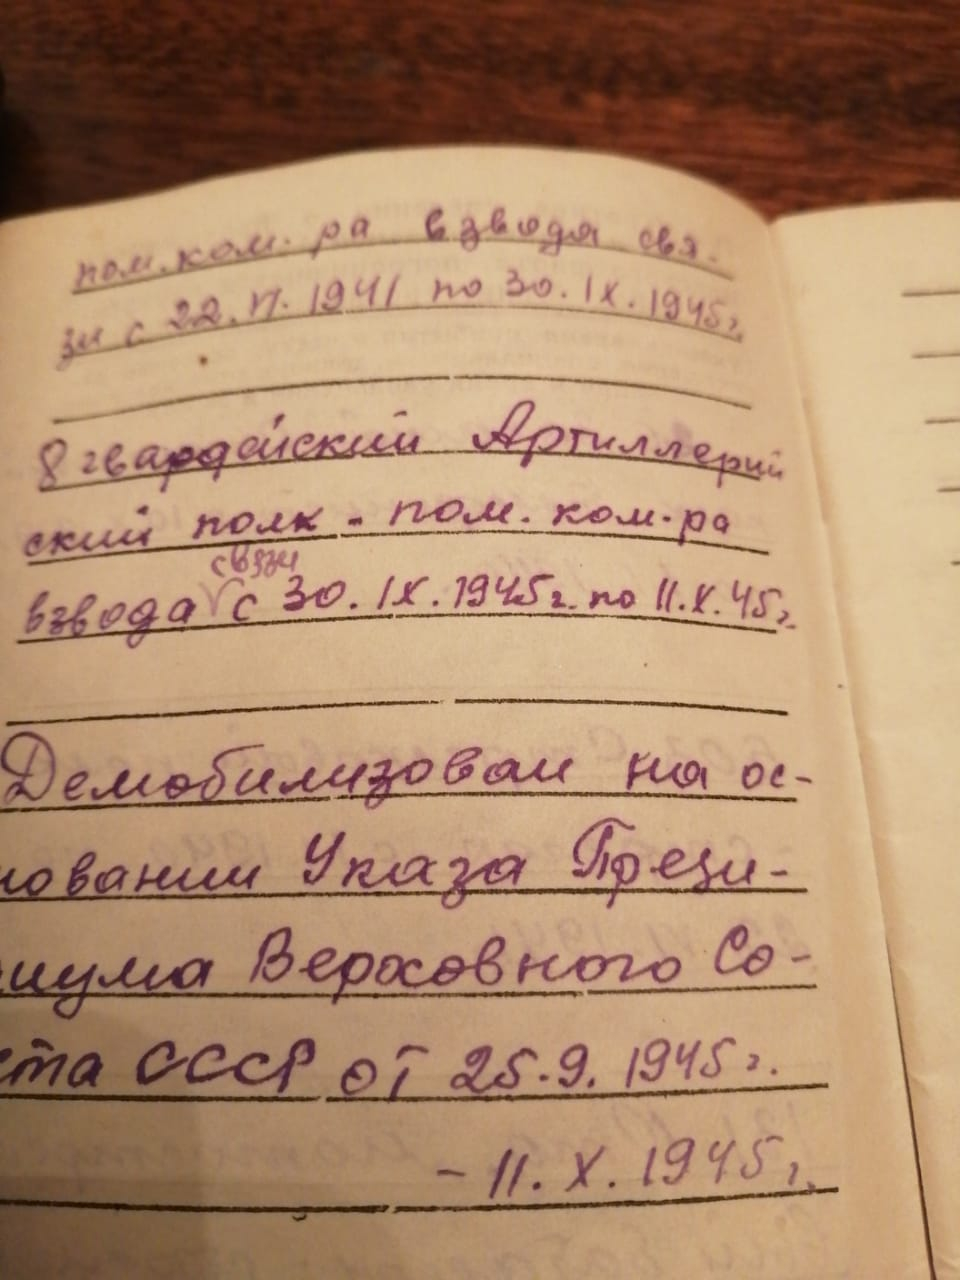 пом. ком. ра взвода свя-
зи с 22. VI. 1941 по 30. IX. 1945 г.
8 гвардейский Артиллерий
ский полк - пом. ком-ра
связи
взвода с 30. IX. 1945 г. по 11. X. 45 г.
Демобилизован на ос-
новании Указа Прези-
диума Верховного Со-
ета СССР от 25. 9. 1945 г.
- 11. X. 1945 г.